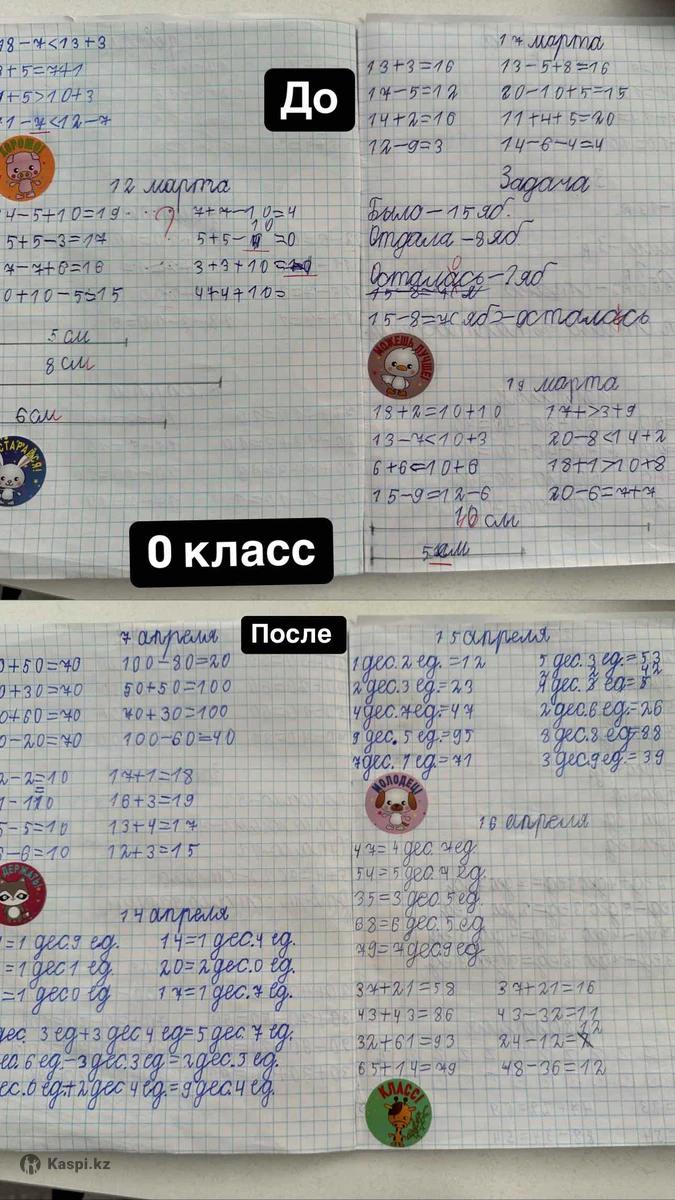 18-7<13+3
3+5=7+1
+5>10+3
11-7<12-7
ХОРОШО!
До
12 марта
4-5+10=19
5+5-3=17
7-7+6=16
0+10-5=15
7+7-10=4
10
5+5-=0
3+3+10=
4+4+10=
5 см
8 см
6 см
СТАРАЙСЯ!
0 класс
17 марта
13+3=16
17-5=12
14+2=16
12-9=3
13-5+8=16
20-10+5=15
11+4+5=20
14-6-4=4
Задача
Было-15 яб.
Отдала-8 яб
Осталась-? яб
15-8=7(яб)-осталась
МОЖЕШЬ ЛУЧШЕ!
19 марта
18+2=10+10
13-7<10+3
6+6<10+6
15-9=12-6
17+>3+9
20-8<14+2
18+1>10+8
20-6=7+7
10 см
5 см
После
7 апреля
0+50=70
0+30=70
0+60=70
0-20=70
100-80=20
50+50=100
70+30=100
100-60=40
2-2=10
1-1=10
5-5=10
6-6=10
17+1=18
16+3=19
13+4=17
12+3=15
ДЕРЖАТЬ!
14 апреля
=1 дес.9 ед.
=1 дес1 ед.
=1 дес0 ед
14=1 дес.4 ед.
20=2дес.0 ед.
17=1 дес.7 ед.
дес. 3 ед+3 дес 4 ед=5 дес. 7 ед.
6 ед-3 дес.3 ед=2 дес.3 ед.
ес.0 ед.+2 дес 4 ед.=9 дес.4 ед.
15 апреля
1 дес.2 ед.=12
2 дес.3 ед.=23
4 дес.7 ед=47
9 дес.5 ед=95
7 дес.1 ед=71
5 дес.3 ед=53
4 дес. 2 ед= 42
2 дес.6 ед=26
8 дес.8 ед=88
3 дес9 ед=39
МОЛОДЕЦ!
16 апреля
47=4 дес.7ед
54=5 дес.4 ед.
35=3 дес.5 ед.
68=6 дес.5 ед
79=7дес9 ед
37+21=58
43+43=86
32+61=93
65+14=79
37+21=16
43-32=11
12
24-12=
48-36=12
КЛАСС!
Kaspi.kz